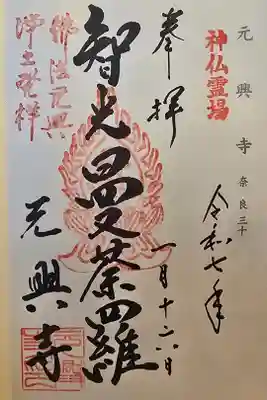 元興寺 奈良三十
神仏霊場
令和七年
奉拝
一月十六日
智光曼荼羅
元興寺
佛法元興
浄土発祥